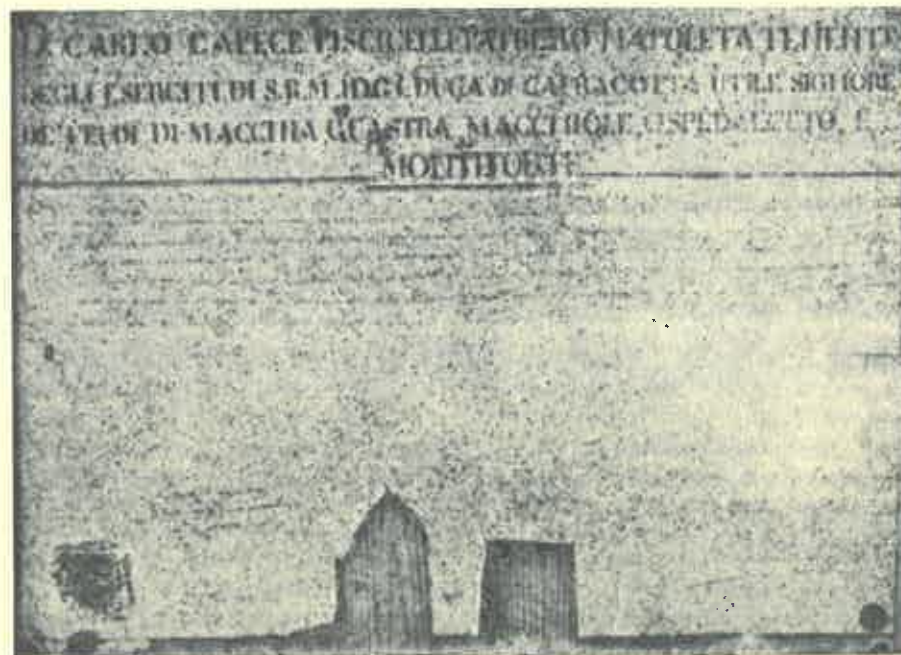 D. CARLO CAPECE PISCICELLI PATRIZIO NAPOLETA TENENTE
DEGLI ESERCITI DI S.R.M. DUCA DI CAPRACOTTA UTILE SIGNORE
DE' FEUDI DI MACCHIA, GUASTRA, MACCHIOLE, OSPEDALETTO, E
MONTEFORTE